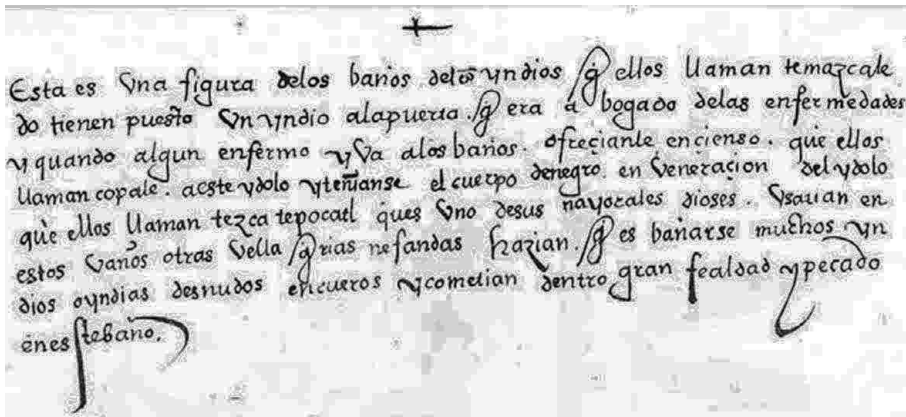 Esta es vna figura delos baños delos yndios q̃ ellos llaman temazcale
do tienen puesto vn yndio ala puerta. q̃ era abogado delas enfermedades
y quando algun enfermo yva alos baños. ofreçianle ençienso. que ellos
llaman copale. a este ydolo y teñianse el cuerpo de negro. en veneraçion del ydolo
que ellos llaman tezcatepocatl ques vno desus mayorales dioses. vsauan en
estos vaños otras vellaq̃rias nefandas hazian. q̃ es bañarse muchos yn
dios o yndias desnudos en cueros y cometian dentro gran fealdad y pecado
en este baño.